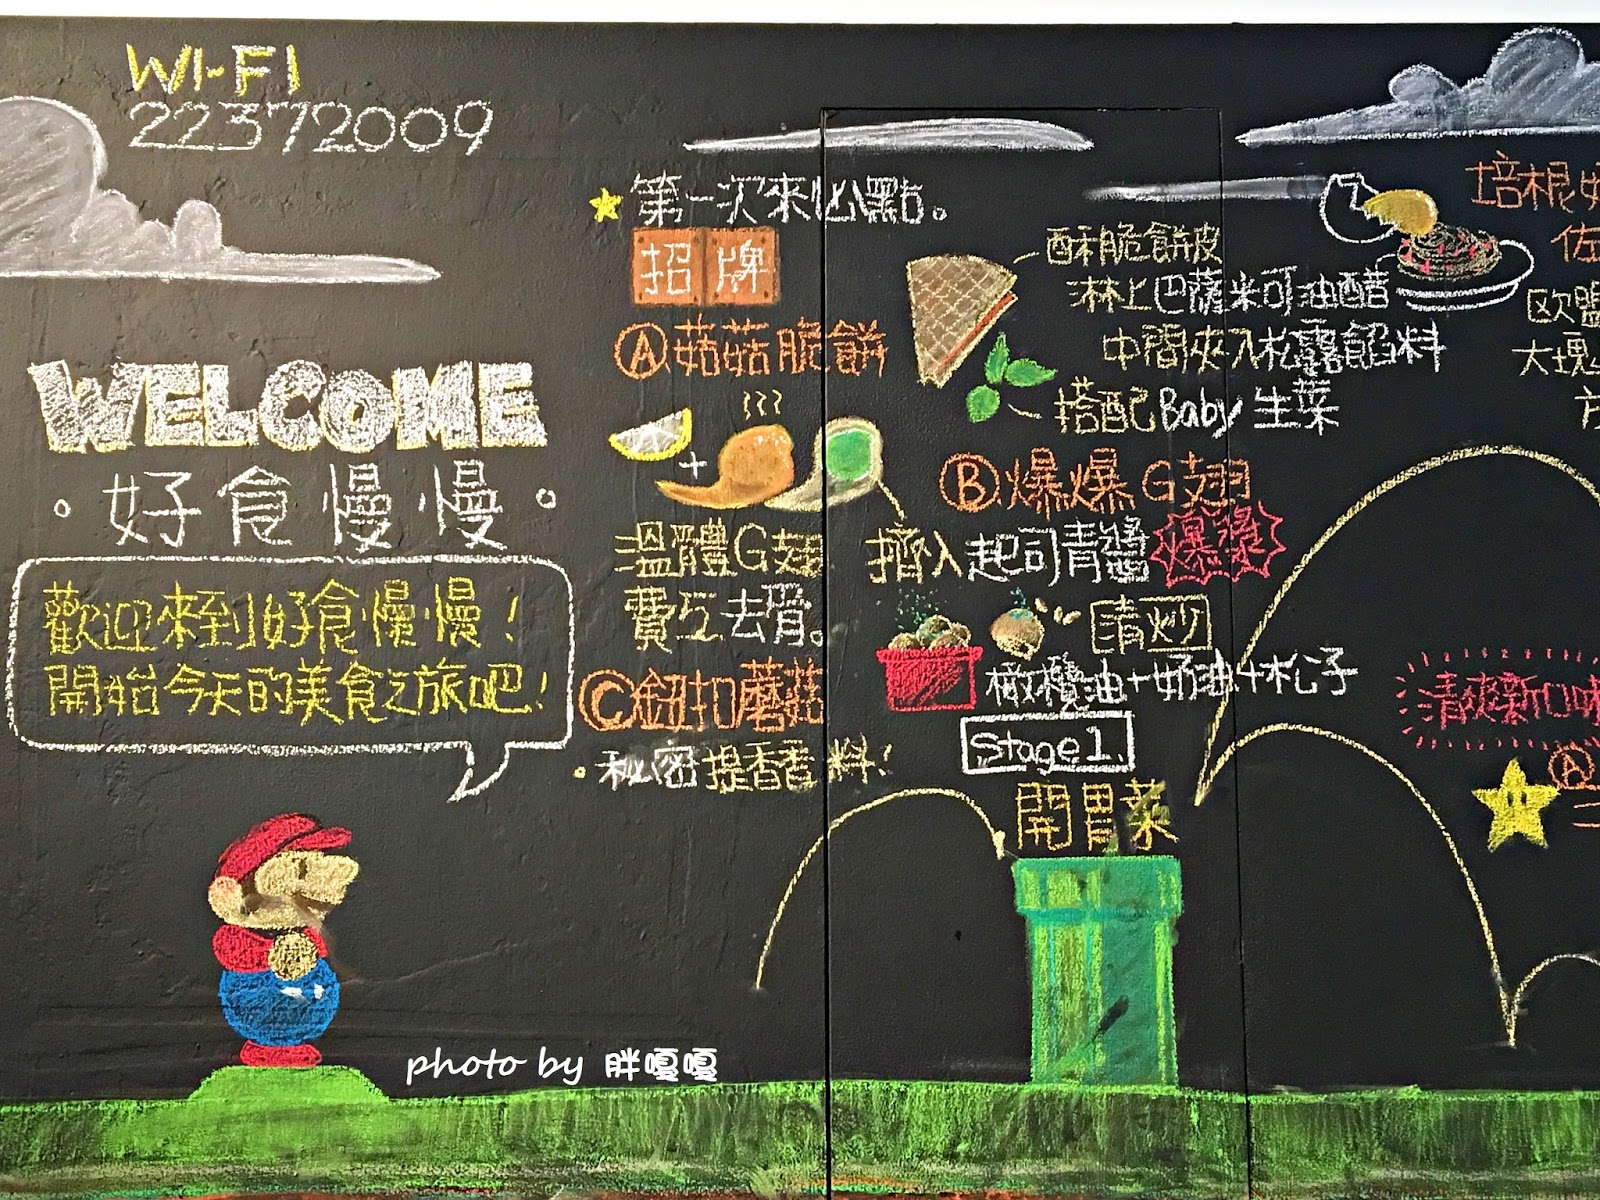 WI-FI
22372009
WELCOME
·好食慢慢·
歡迎來到好食慢慢!
開始今天的美食之旅吧!
第一次來必點。
招牌
Ⓐ菇菇脆餅
酥脆餅皮
淋上巴薩米可油醋
中間夾入松露餡料
搭配Baby生菜
Ⓑ爆爆G翅
溫體G翅
費工去骨。
擠入起司青醬
爆漿
Ⓒ鈕扣蘑菇
清炒
橄欖油+奶油+松子
·秘密提香香料!
Stage1.
開胃菜
培根
佐
歐盟
大塊
方
清爽新口味
Ⓐ
photo by 胖嘎嘎